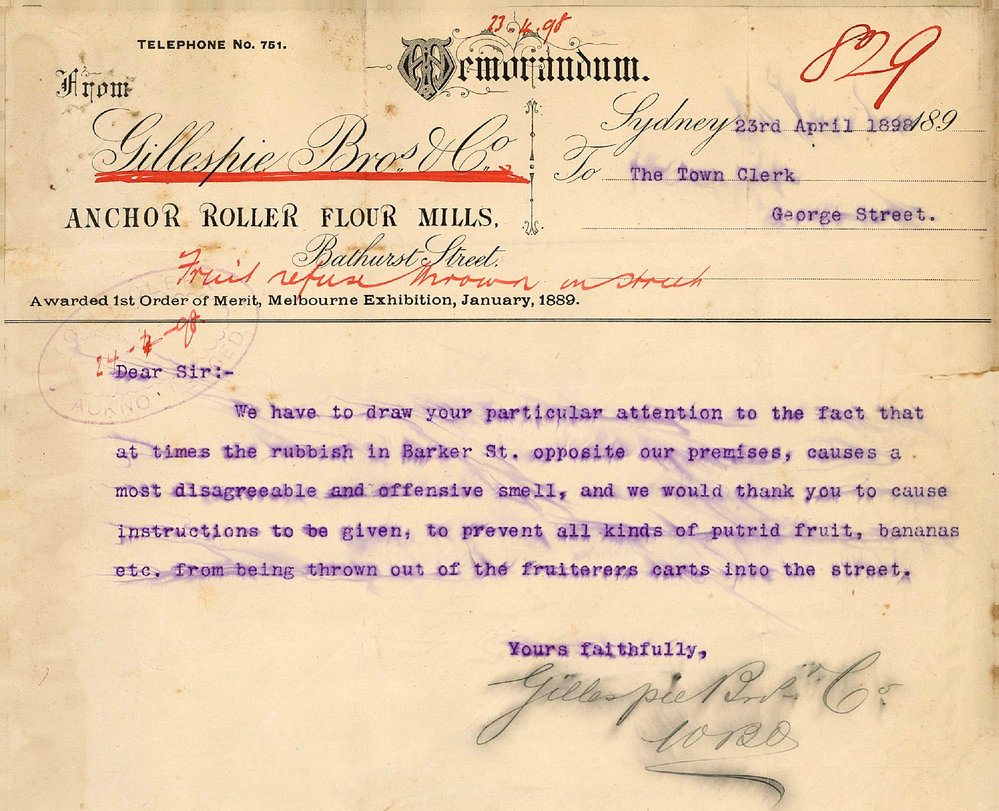 23.4.98
829
TELEPHONE No. 751.
Memorandum.
From
Gillespie Bros. & Co.
ANCHOR ROLLER FLOUR MILLS,
Bathurst Street.
Sydney 23rd April 1898 189
To The Town Clerk
George Street.
Fruit refuse thrown in street
Awarded 1st Order of Merit, Melbourne Exhibition, January, 1889.
24-4-98
Dear Sir:-
We have to draw your particular attention to the fact that
at times the rubbish in Barker St. opposite our premises, causes a
most disagreeable and offensive smell, and we would thank you to cause
instructions to be given, to prevent all kinds of putrid fruit, bananas
etc. from being thrown out of the fruiterers carts into the street.
Yours faithfully,
Gillespie Bros. Co